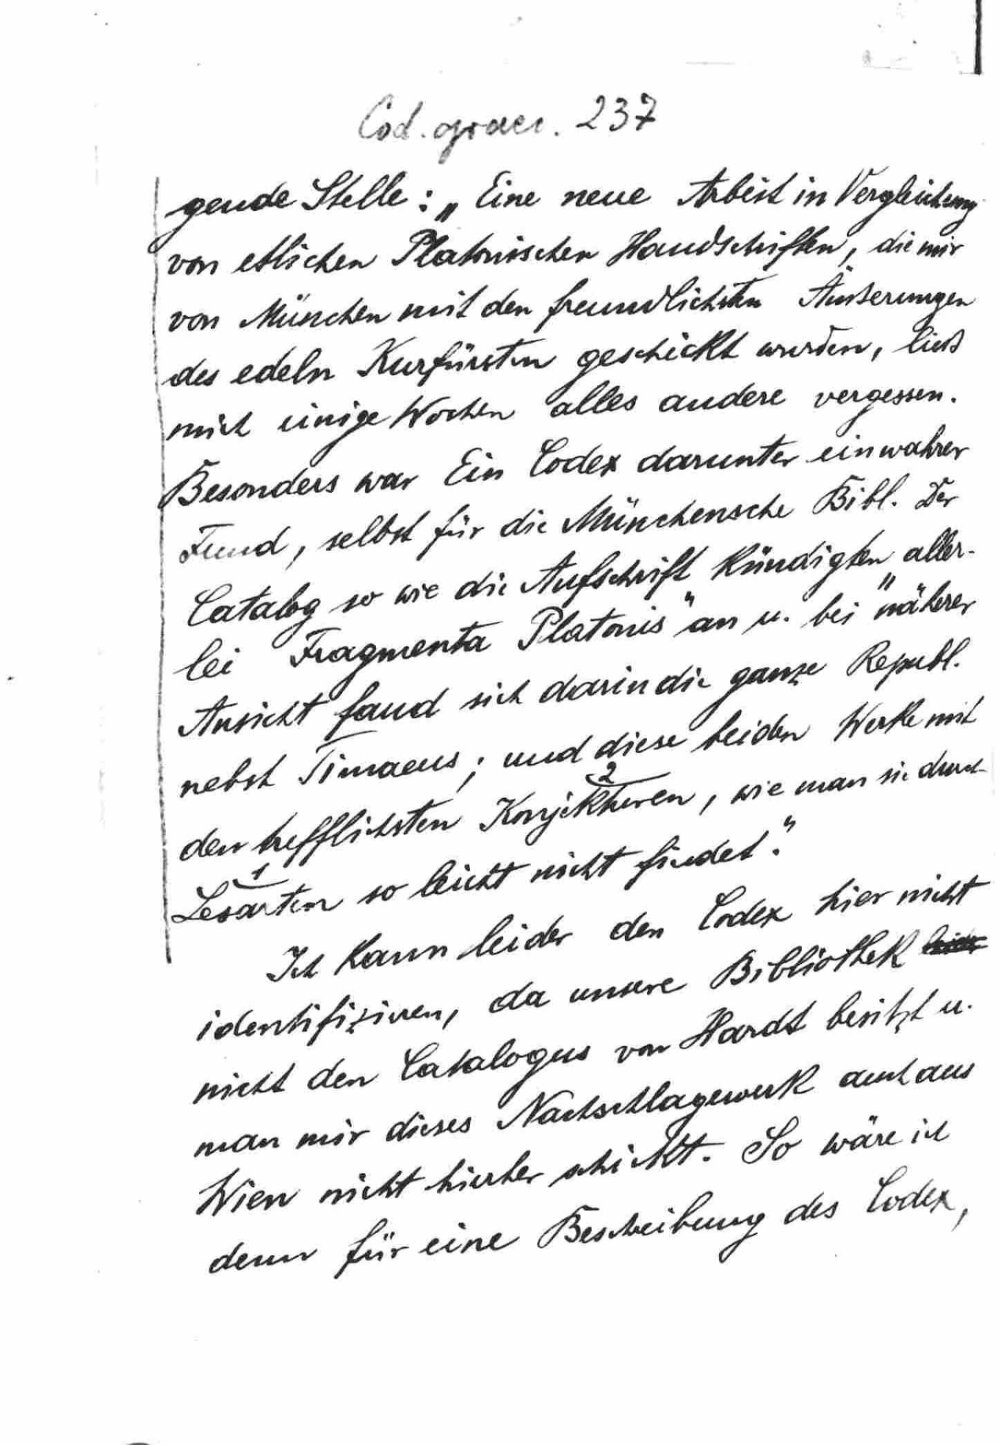 Cod. graec. 237
gende Stelle: „Eine neue Arbeit in Vergleichung
von etlichen Platonischen Handschriften, die mir
von München mit den freundlichsten Äußerungen
des edeln Kurfürsten geschickt wurden, ließ
mich einige Wochen alles andere vergessen.
Besonders war Ein Codex darunter ein wahrer
Fund, selbst für die Münchensche Bibl. Der
Catalog so wie die Aufschrift kündigten aller-
lei Fragmenta Platonis" an u. bei "näherer
Ansicht fand sich darin die ganze Republ.
nebst Timaeus; und diese beiden Werke mit
den trefflichsten Konjekturen, wie man sie durch
2
1
Lesarten so leicht nicht findet."
Ich kann leider den Codex hier nicht
identifiziren, da unsere Bibliothek
nicht den Catalogus von Hardt besitzt u.
man mir dieses Nachschlagewerk auch aus
Wien nicht hierher schickt. So wäre ich
denn für eine Beschreibung des Codex,